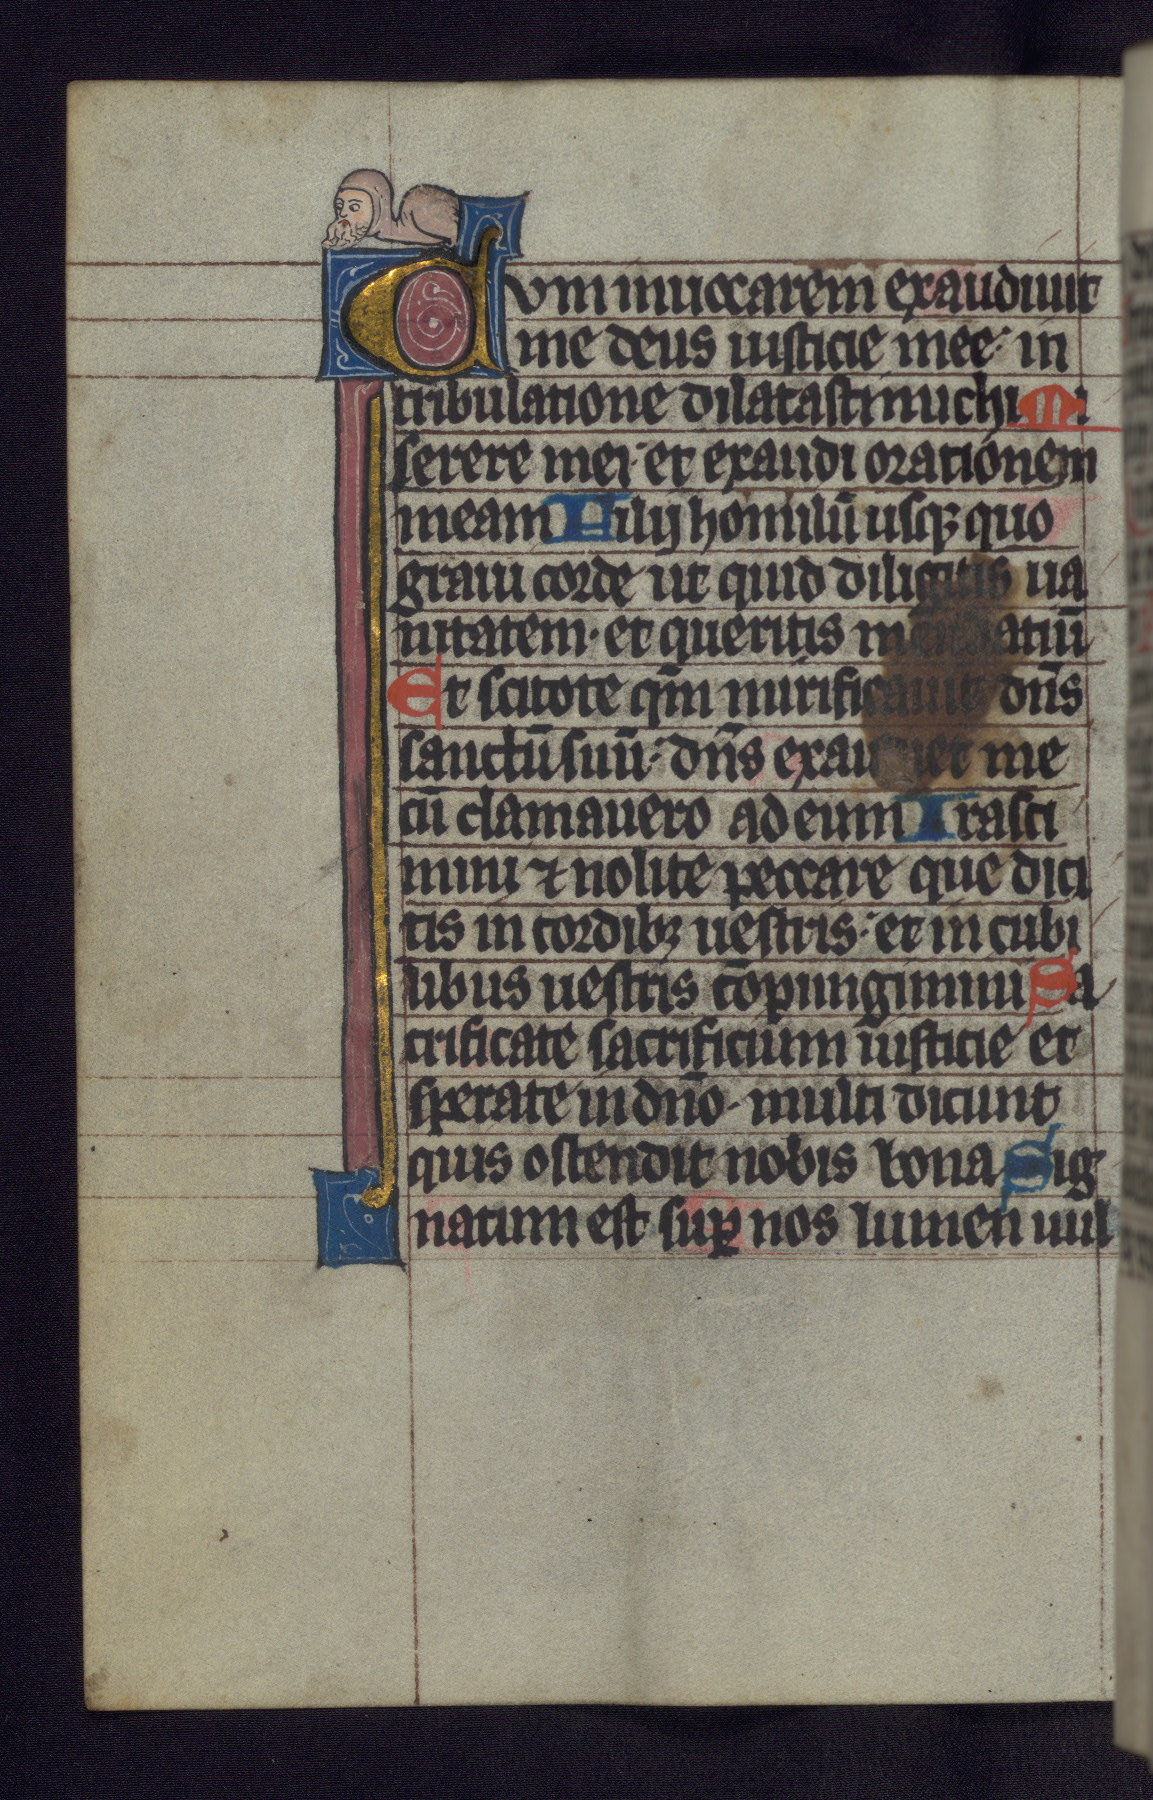 Dvm inuocarem exaudiuit
me deus iusticie mee· in
tribulatione dilatasti michi Mi
serere mei· et exaudi orationem
meam Filij hominū usqꝫ quo
graui corde ut quid diligitis ua
nitatem· et queritis mendatiū
Et scitote qm̄ mirificauit dn̄s
sanctū suū· dn̄s exaudiet me
cū clamauero ad eum Irasci
mini ⁊ nolite peccare que dici
tis in cordibꝫ uestris· et in cubi
libus uestris cōpungimini Sa
crificate sacrificium iusticie et
sperate in dn̄o· multi dicunt
quis ostendit nobis bona Sig
natum est sup̄ nos lumen uul